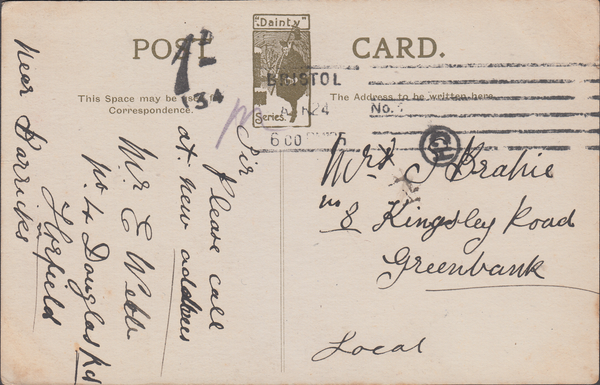 POST CARD.
"Dainty"
Series.
This Space may be
Correspondence.
The Address to be written here.
BRISTOL
No. 3
24
6 00
1d
34
Sir
Please call
at new address
Mr E Webb
no 4 Douglas Rd
Horfield
Near Barricks
Mr J Brahie
no 8 Kingsley Road
Greenbank
Local